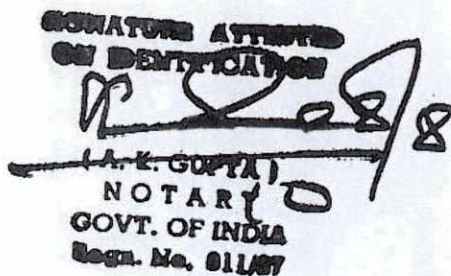 SIGNATURE ATTESTED
ON IDENTIFICATION
08/8
(A. K. GUPTA)
NOTARY
GOVT. OF INDIA
Regn. No. 011/97